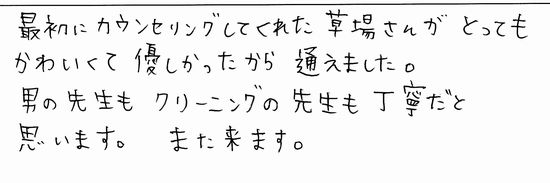 最初にカウンセリングしてくれた草場さんがとっても
かわいくて優しかったから通えました。
男の先生もクリーニングの先生も丁寧だと
思います。 また来ます。